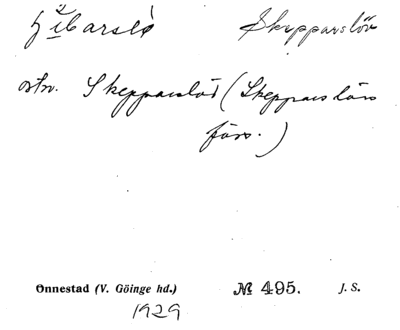 Skepparslöv
ortn. Skepparslöv (Skepparslövs
förs.)
Önnestad (V. Göinge hd.) № 495. J. S.
1929